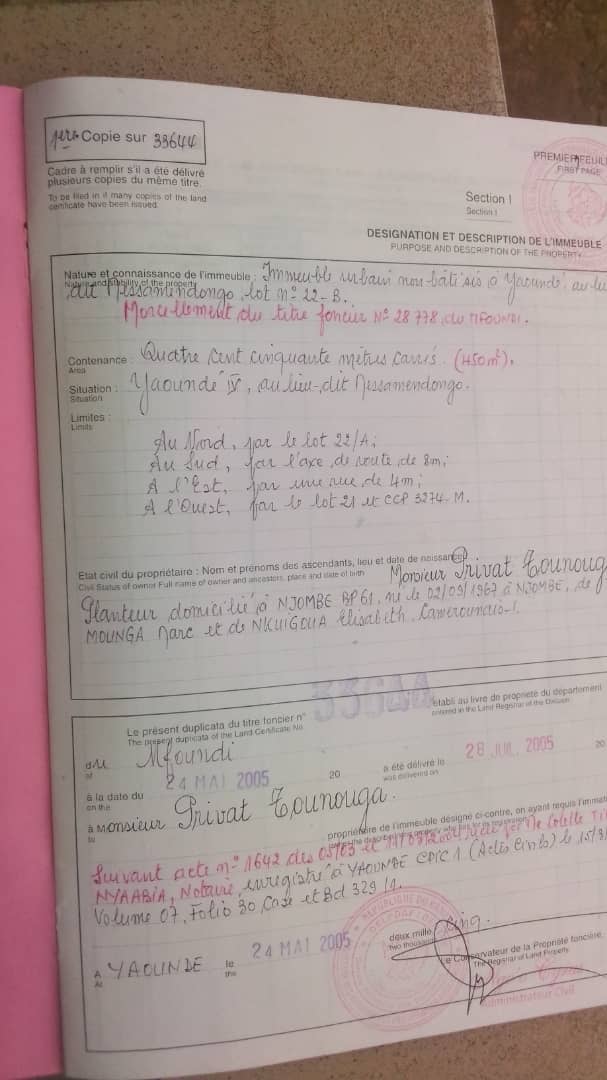 1ère Copie sur 33644
Cadre à remplir s'il a été délivré
plusieurs copies du même titre.
To be filed in if many copies of the land
certificate have been issued
PREMIER FEUIL
FIRST PAGE
Section 1
Section 1
DESIGNATION ET DESCRIPTION DE L'IMMEUBLE
PURPOSE AND DESCRIPTION OF THE PROPERTY
Nature et connaissance de l'immeuble : Immeuble urbain non bâti sis à Yaoundé, au lieu
Nature and stability of the property
dit Nssamendongo, lot n° 22-B.
Morcellement du titre foncier N° 28778, du MFOUNDI.
Contenance : Quatre cent cinquante mètres carrés. (450m²).
Area
Situation : Yaoundé IV, au lieu-dit Nssamendongo.
Situation
Limites :
Limits
Au Nord, par le lot 22/A;
Au Sud, par l'axe de route de 8m;
A l'Est, par une rue de 4m;
A l'Ouest, par le lot 21 et CCP 3274. M.
Etat civil du propriétaire : Nom et prénoms des ascendants, lieu et date de naissance.
Civil Status of owner Full name of owner and ancestors, place and date of birth
Monsieur Privat Tounouga
Planteur domicilié à NJOMBE BP 61, né le 02/09/1967 à NJOMBE, de
MOUNGA Marc et de NKUIGOUA Elisabeth, Camerounais.
Le présent duplicata du titre foncier n° 33644 établi au livre de propriété du département
The present duplicata of the Land Certificate No entered in the Land Registrar of the Division
du Mfoundi
of
à la date du 24 MAI 2005 20 a été délivré le 28 JUL 2005 20
on the was delivered on
à Monsieur Privat Tounouga.
to
propriétaire de l'immeuble désigné ci-contre, en ayant requis l'immat
Suivant acte n° 1642 des 05/03 et 11/03/2004 par Me Colette
NYAABIA, Notaire, enregistré à YAOUNDE CPIC 1 (Actes Civils) le 15/3/
Volume 07, Folio 30, Case et Bd 329/1.
A YAOUNDE le 24 MAI 2005 deux mille cinq.
At the two thousand
Le Conservateur de la Propriété foncière,
The Registrar of Land Property
Administrateur Civil